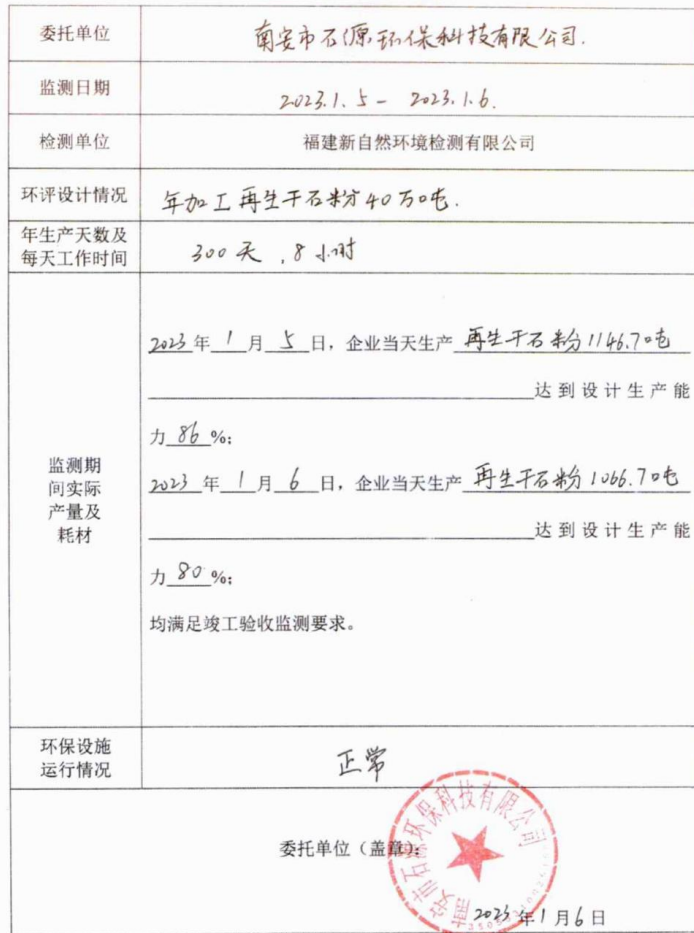 委托单位 南安市石源环保科技有限公司.
监测日期 2023.1.5 - 2023.1.6.
检测单位 福建新自然环境检测有限公司
环评设计情况 年加工再生干石粉40万吨.
年生产天数及
每天工作时间 300天，8小时
2023年1月5日，企业当天生产再生干石粉1146.7吨
达到设计生产能
力86%;
监测期
间实际
产量及
耗材
2023年1月6日，企业当天生产再生干石粉1066.7吨
达到设计生产能
力80%;
均满足竣工验收监测要求。
环保设施
运行情况 正常
委托单位（盖章）:
南安市石源环保科技有限公司
2023年1月6日